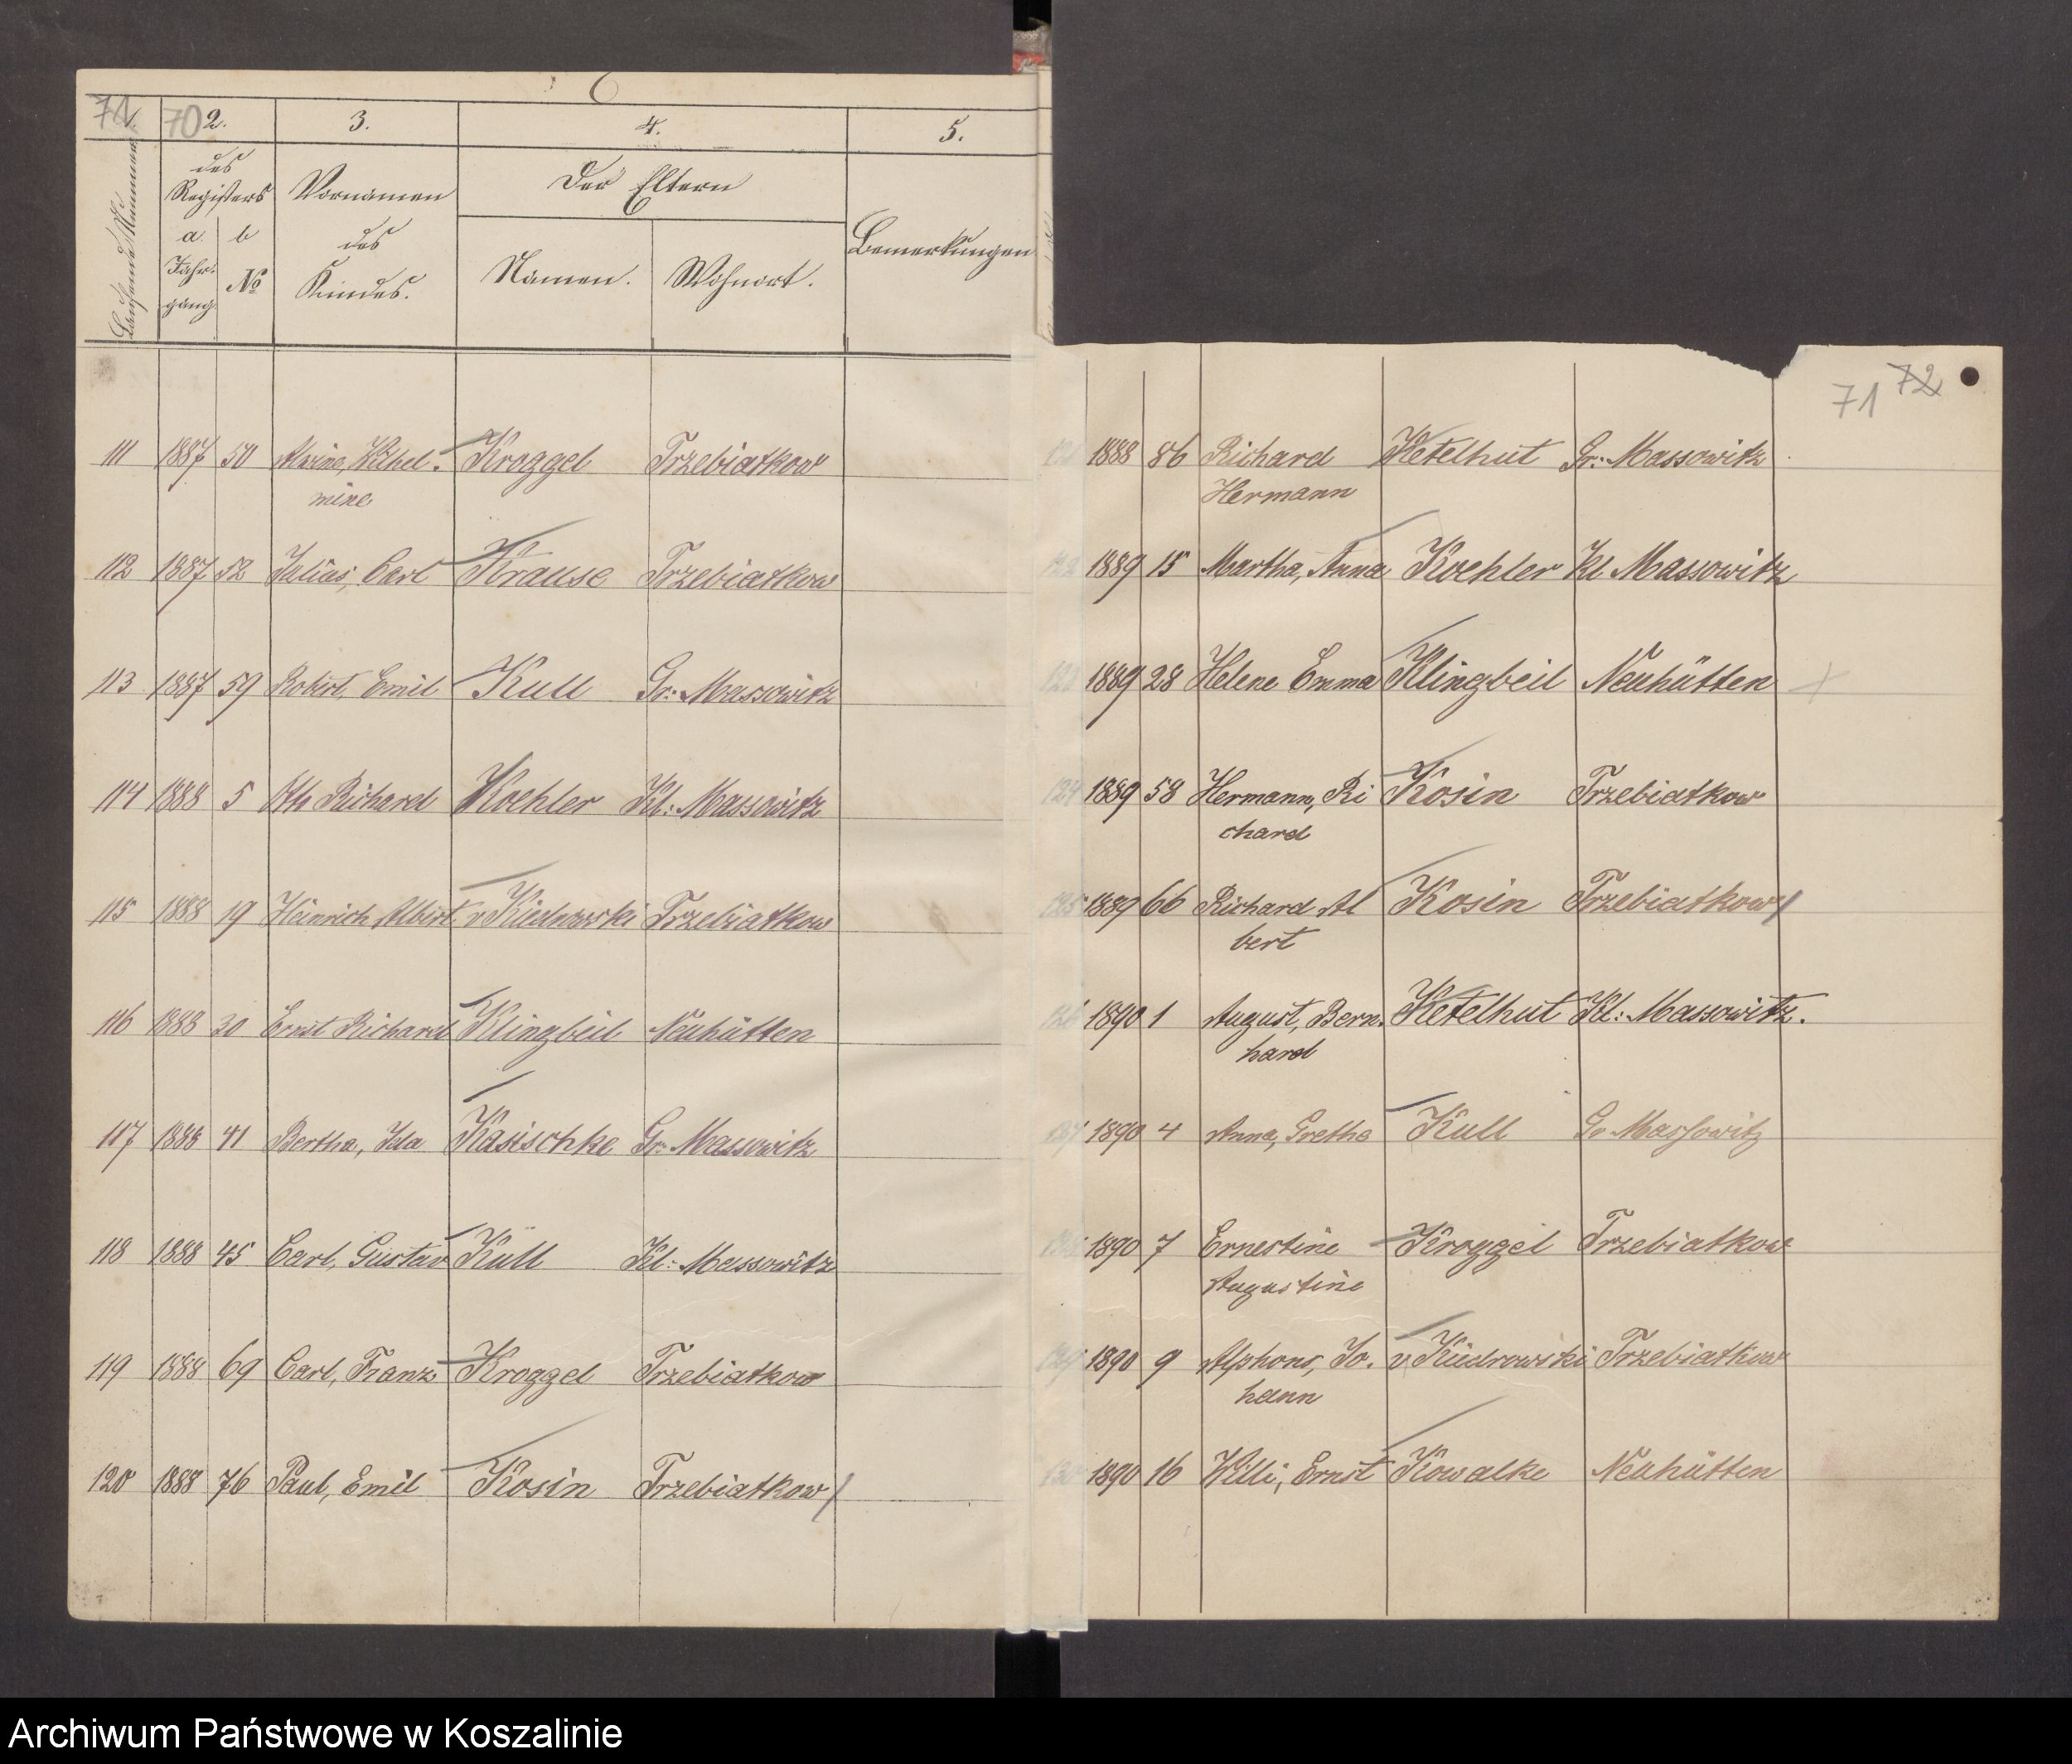 71 1. 70 2. 3. 4. 5.
Laufende Nummer
des Registers Vornamen Der Eltern
a. b des
Jahrgang № Kindes. Namen. Wohnort. Bemerkungen
111 1887 50 Wilhel- Kroggel Trzebiatkow
mine
112 1887 52 Julius, Carl Krause Trzebiatkow
113 1887 59 Robert, Emil Kull Gr: Massowitz
114 1888 5 Otto Richard Koehler Kl: Massowitz
115 1888 19 Heinrich, Albert v Trzebiatkow
116 1888 30 Ernst Richard Klingbeil Neuhütten
117 1888 41 Bertha, Ida Kasischke Gr: Massowitz
118 1888 45 Carl, Gustav Kull Kl: Massowitz
119 1888 69 Carl, Franz Kroggel Trzebiatkow
120 1888 76 Paul, Emil Kosin Trzebiatkow
71 72
121 1888 86 Richard Ketelhut Gr: Massowitz
Hermann
122 1889 15 Martha, Anna Koehler Kl Massowitz
123 1889 28 Helene Emma Klingbeil Neuhütten
124 1889 58 Hermann, Ri Kosin Trzebiatkow
chard
125 1889 66 Richard Al Kosin Trzebiatkow
bert
126 1890 1 August, Bern- Ketelhut Kl: Massowitz.
hard
127 1890 4 Anna, Grethe Kull Gr Massowitz
128 1890 7 Ernestine Kroggel Trzebiatkow
Augustine
129 1890 9 Alphons, Jo- v Küdrowski Trzebiatkow
hann
130 1890 16 Willi, Ernst Kowalke Neuhütten
Archiwum Państwowe w Koszalinie